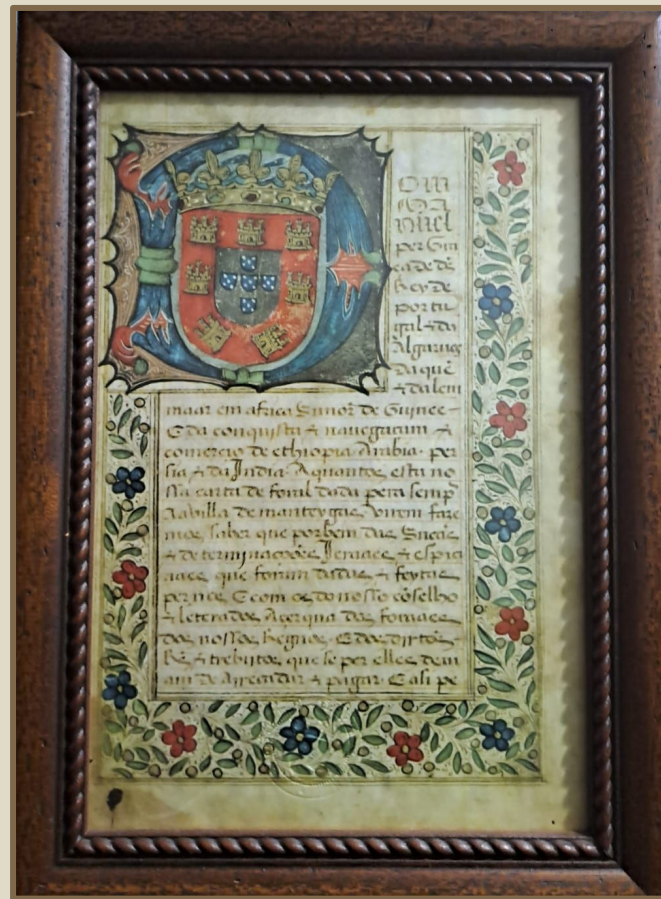 Dom
Ma
nuel
per Gra
ca de ds
Rey de
portu
gal & do
Algarues
daque
& dalem
maar em africa Sunor de Guinee
E da conquista & nauegacam &
comercio de ethiopia Arabia per
sia & da India A quantos esta no
ssa carta de foral dada pera semp
a villa de manteygas virem faze
mos saber que por bem das
& determinacooes Jeraaes & espici
aaes que foram dadas & feytas
per nos E com os do nosso coselho
& leterados Açerqua dos foraaes
dos nossos Regnos E dos dirtos
& trebutos que se per elles deui
am de arrecadar & pagar E asi pe